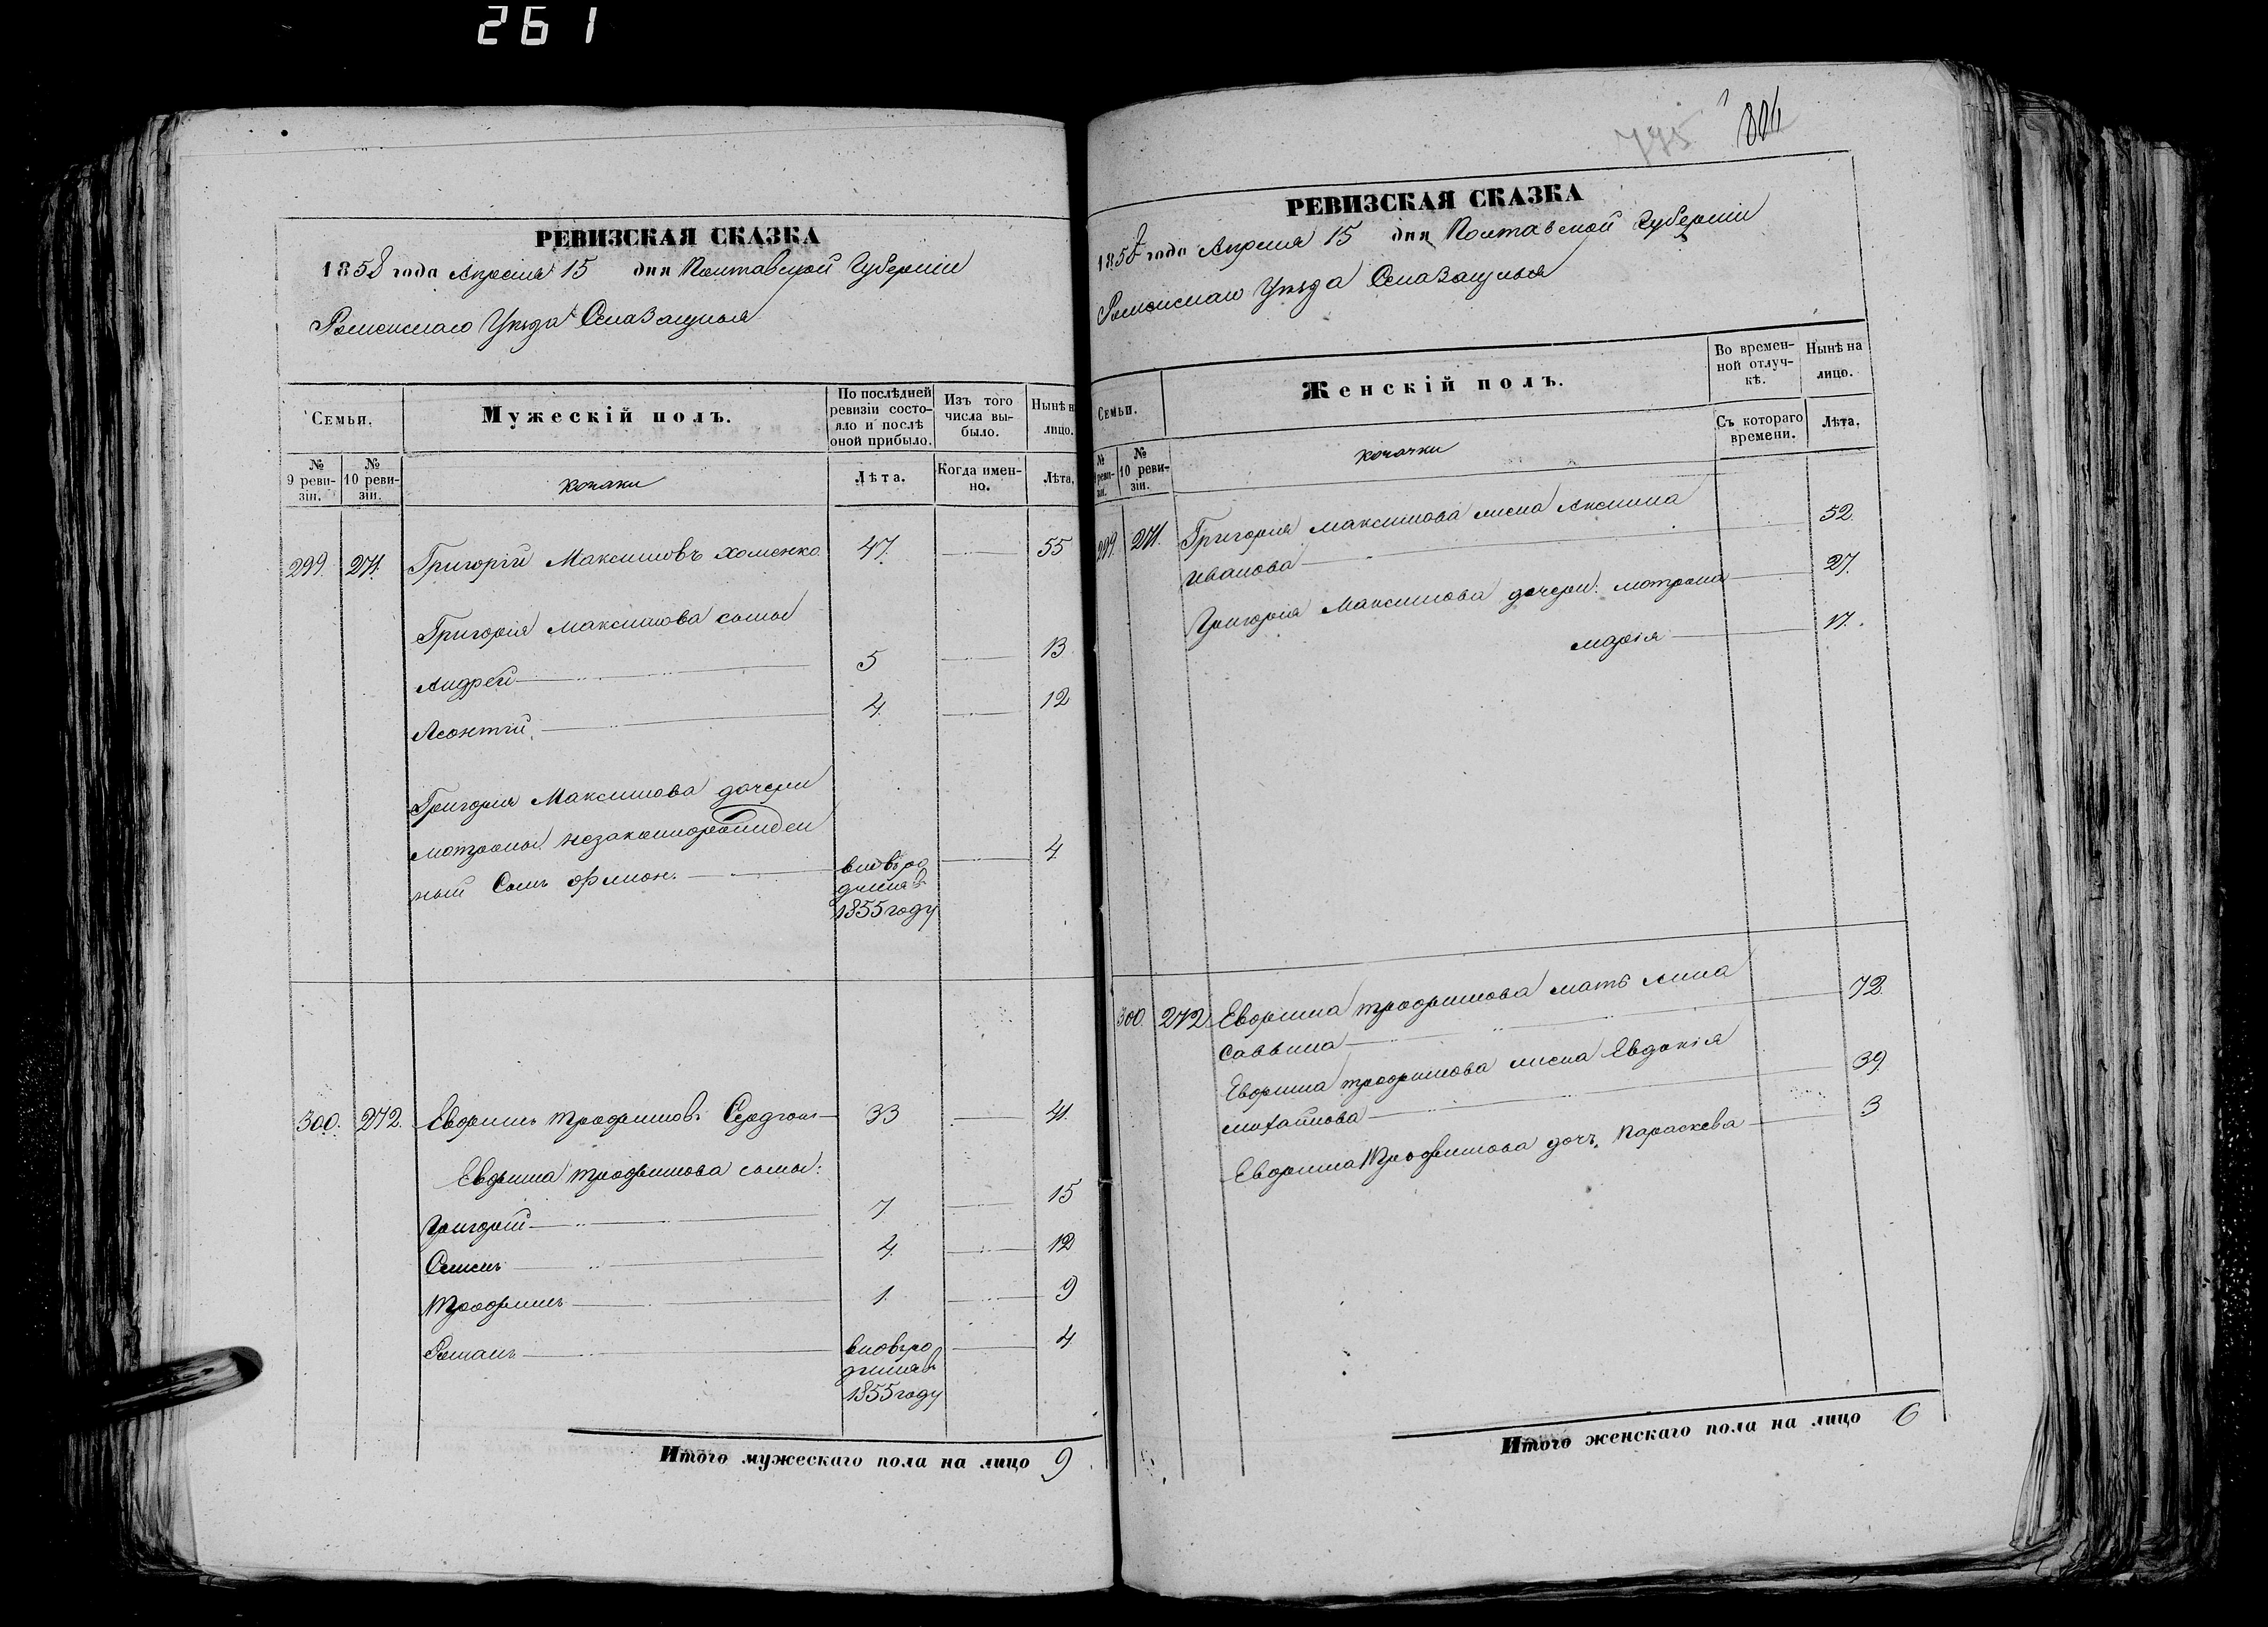 261
РЕВИЗСКАЯ СКАЗКА
1858 года Апреля 15 дня Полтавской Губерніи
Роменскаго Уѣзда
Семьи.
Мужескій полъ.
По послѣдней ревизіи состояло и послѣ оной прибыло.
Изъ того числа выбыло.
Нынѣ н
лицо.
№ 9 ревизіи.
№ 10 ревизіи.
козаки
Лѣта.
Когда именно.
Лѣта.
299. 271. Григорій Максимовъ Хоменко 47. 55
Григорія Максимова сыны
Андрей 5 13
Леонтій. 4. 12
Григорія Максимова дочери
мотроны незаконнорожден
ный Сынъ вновь ро 4
дился в
1855 году
300. 272. Евфимъ трофимовъ 33 41.
Евфима трофимова сыны:
Григорій 7 15
Семенъ 4. 12
Трофимъ 1. 9
Романъ вновь ро 4
дился в
1855 году
Итого мужескаго пола на лицо 9
775
РЕВИЗСКАЯ СКАЗКА
1858 года Апреля 15 дня Полтавской Губерніи
Роменскаго Уѣзда
Семьи.
Женскій полъ.
Во временной отлучкѣ.
Нынѣ на лицо.
№ 9 ревизіи.
№ 10 ревизіи.
козачки
Съ котораго времени.
Лѣта.
299. 271. Григорія максимова жена Аксинья
Иванова 52.
Григорія Максимова дочери: мотрона 27.
марія 17.
300. 272 Евфима трофимова мать Анна
Саввина 72.
Евфима трофимова жена Евдокія
михайлова 39
Евфима Трофимова дочь Параскева 3
Итого женскаго пола на лицо 6